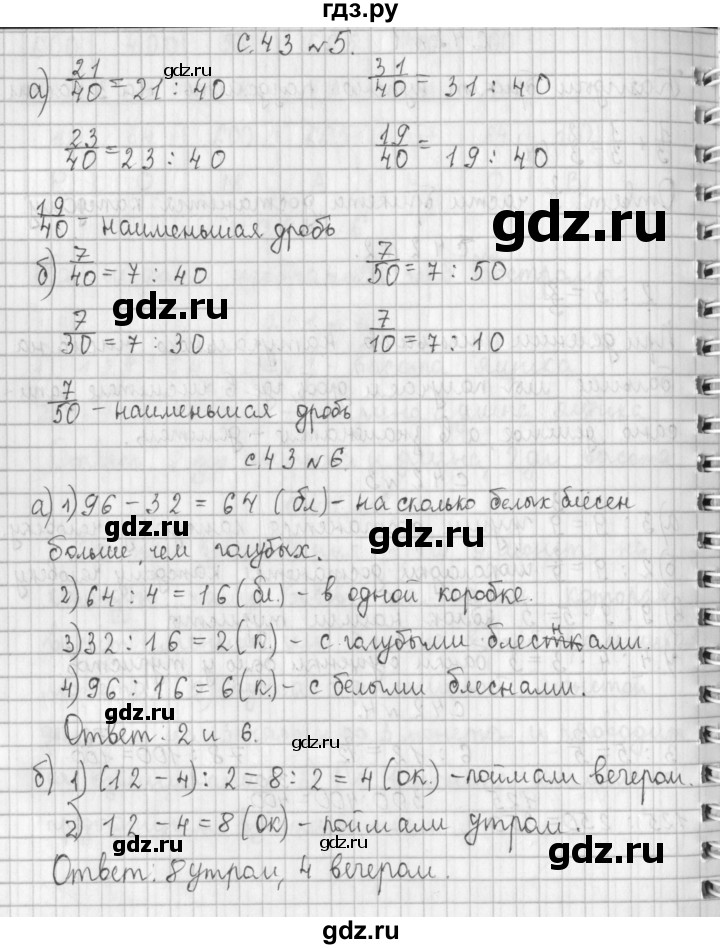 гдз.ру
с.43 №5.
а) 21/40 = 21 : 40    31/40 = 31 : 40
gdz.ru
23/40 = 23 : 40    19/40 = 19 : 40
19/40 - наименьшая дробь
gdz.ru
б) 7/40 = 7 : 40    7/50 = 7 : 50
gdz.ru
7/30 = 7 : 30    7/10 = 7 : 10
gdz.ru
7/50 - наименьшая дробь
с.43 №6.
gdz.ru
а) 1) 96 - 32 = 64 (бл) - на сколько белых блёсен
gdz.ru gdz.ru
больше, чем голубых.
2) 64 : 4 = 16 (бл.) - в одной коробке.
gdz.ru
3) 32 : 16 = 2 (к.) - с голубыми блеснами.
4) 96 : 16 = 6 (к.) - с белыми блеснами.
gdz.ru
Ответ: 2 и 6.
gdz.ru
б) 1) (12 - 4) : 2 = 8 : 2 = 4 (ок.) - поймали вечером.
2) 12 - 4 = 8 (ок) - поймали утром.
gdz.ru gdz.ru
Ответ: 8 утром, 4 вечером.
gdz.ru gdz.ru